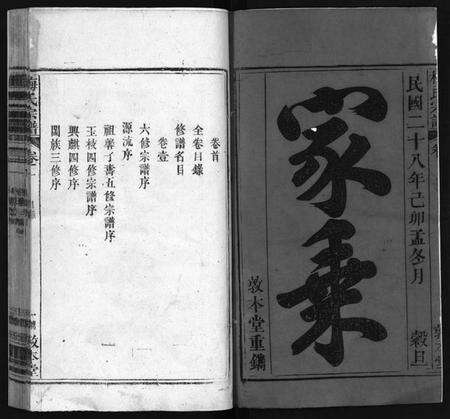 民國二十八年己卯孟冬月
穀旦
家乘
敦本堂重鐫
卷首
全卷目錄
修譜名目
卷壹
六修宗譜序
源流序
祖善子壽五修宗譜序
玉枝四修宗譜序
興麒四修序
闔族三修序
梅氏宗譜
卷首
敦本堂